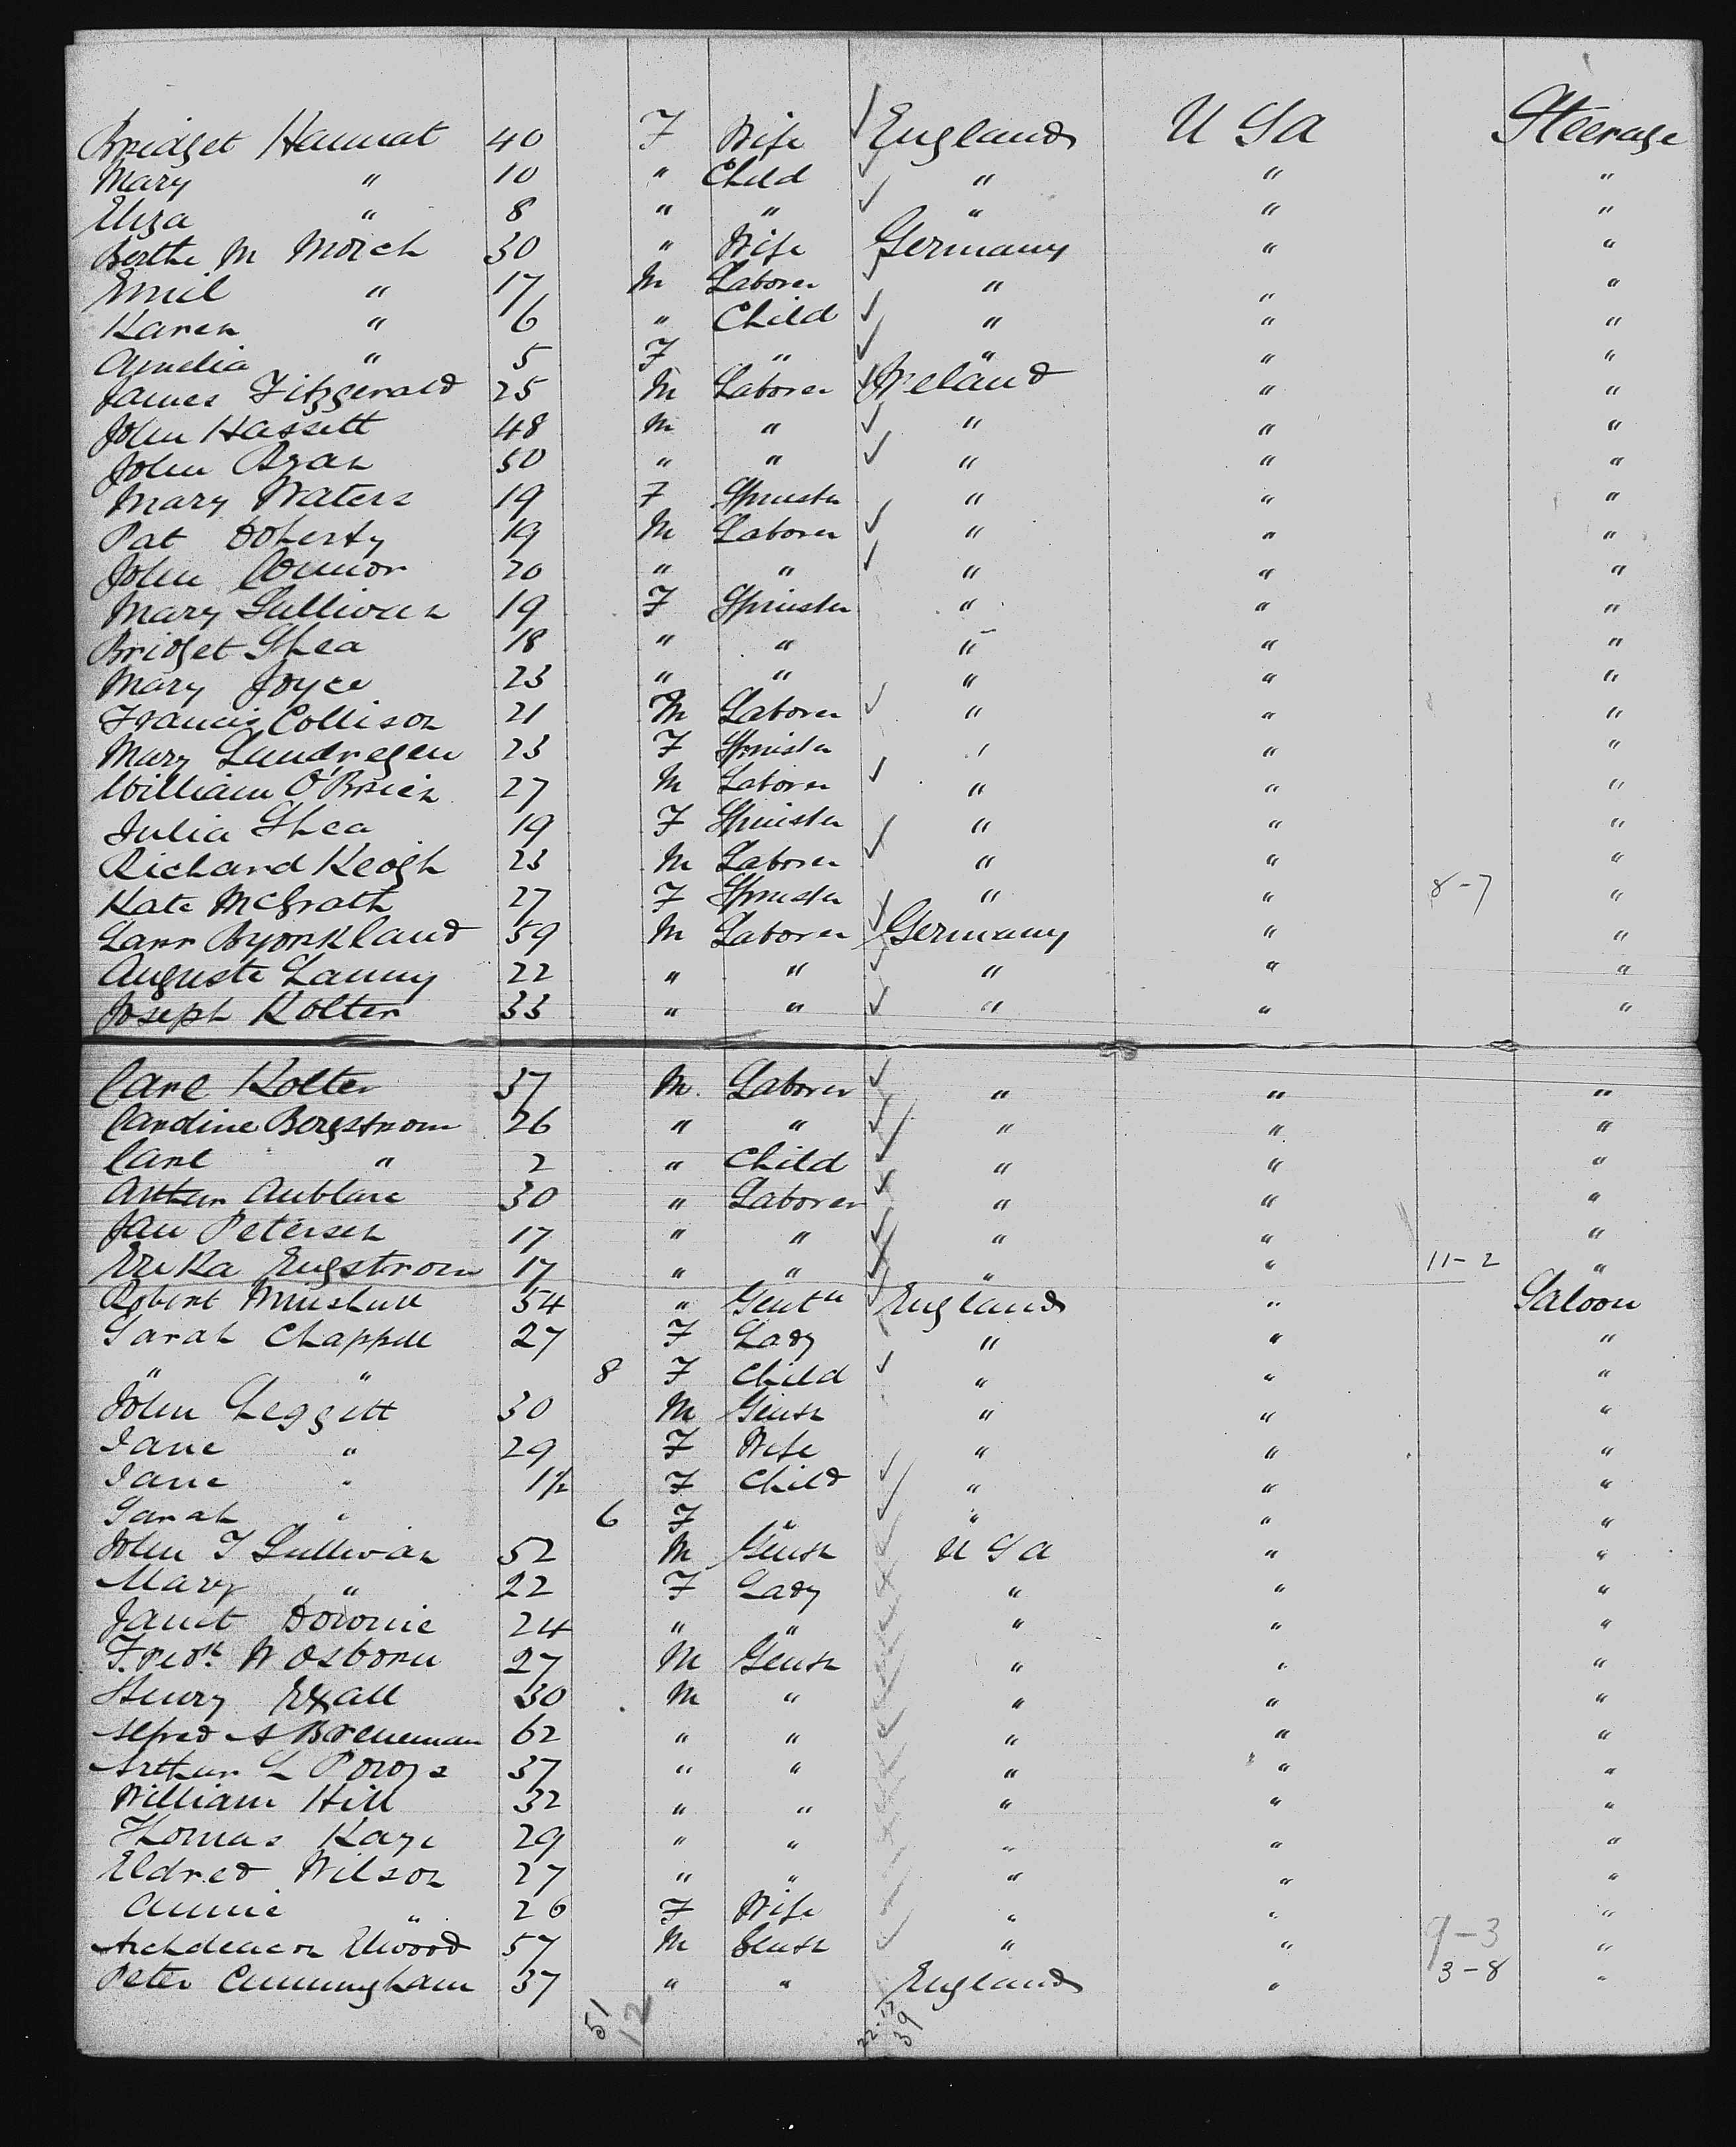 Bridget Hannat 40 F Wife ✓ England U S a Steerage
Mary " 10 " Child ✓ " " "
Eliza " 8 " " ✓ " " "
Berthe M Morch 30 " Wife Germany " "
Emil " 17 M Laborer ✓ " " "
Karen " 6 " Child ✓ " " "
Amelia " 5 F " ✓ " " "
James Fitzgerald 25 M Laborer ✓ Ireland " "
John Hassett 48 M " ✓ " " "
John Ryan 50 " " ✓ " " "
Mary Waters 19 F Spinster " " "
Pat Doherty 19 M Laborer ✓ " " "
John Connor 20 " " ✓ " " "
Mary Sullivan 19 F Spinster " " "
Bridget Shea 18 " " " " "
Mary Joyce 23 " " " " "
Francis Collison 21 M Laborer ✓ " " "
Mary Lundregen 23 F Spinster " " "
William O'Brien 27 M Laborer ✓ " " "
Julia Shea 19 F Spinster " " "
Richard Keogh 23 M Laborer ✓ " " "
Kate McGrath 27 F Spinster " " 8-7 "
Lars Byorkland 59 M Laborer ✓ Germany " "
Auguste Lanny 22 " " ✓ " " "
Joseph Kolter 33 " " ✓ " " "
Carl Kolter 37 M. Laborer ✓ " " "
Caroline Bergstrom 26 " " ✓ " " "
Carl " 2 " Child ✓ " " "
Arthur Aublare 30 " Laborer ✓ " " "
Jan Petersen 17 " " ✓ " " "
Erika Engstrom 17 " " ✓ " " 11-2 "
Robert Minshull 54 " Gentn ✓ England " Saloon
Sarah Chappell 27 F Lady " " "
" " 8 F Child ✓ " " "
John Leggett 30 M Gentn " " "
Jane " 29 F Wife " " "
Jane " 1½ F Child ✓ " " "
Sarah " 6 F " ✓ " " "
John T Sullivan 52 M Gentn U S a " "
Mary " 22 F Lady " " "
Janet Downie 24 " " " " "
Fredk W Osborn 27 M Gentn " " "
Henry Exall 30 M " " " "
Alfred A Breneman 62 " " " " "
Arthur L 37 " " " " "
William Hill 32 " " " " "
Thomas Kaye 29 " " " " "
Eldred Wilson 27 " " " " "
Annie " 26 F Wife " " "
Archdeacon Elwood 57 M Gentn ✓ " " 9-3 "
Peter Cunningham 37 " " England " 3-8 "
51 12 22.17 39